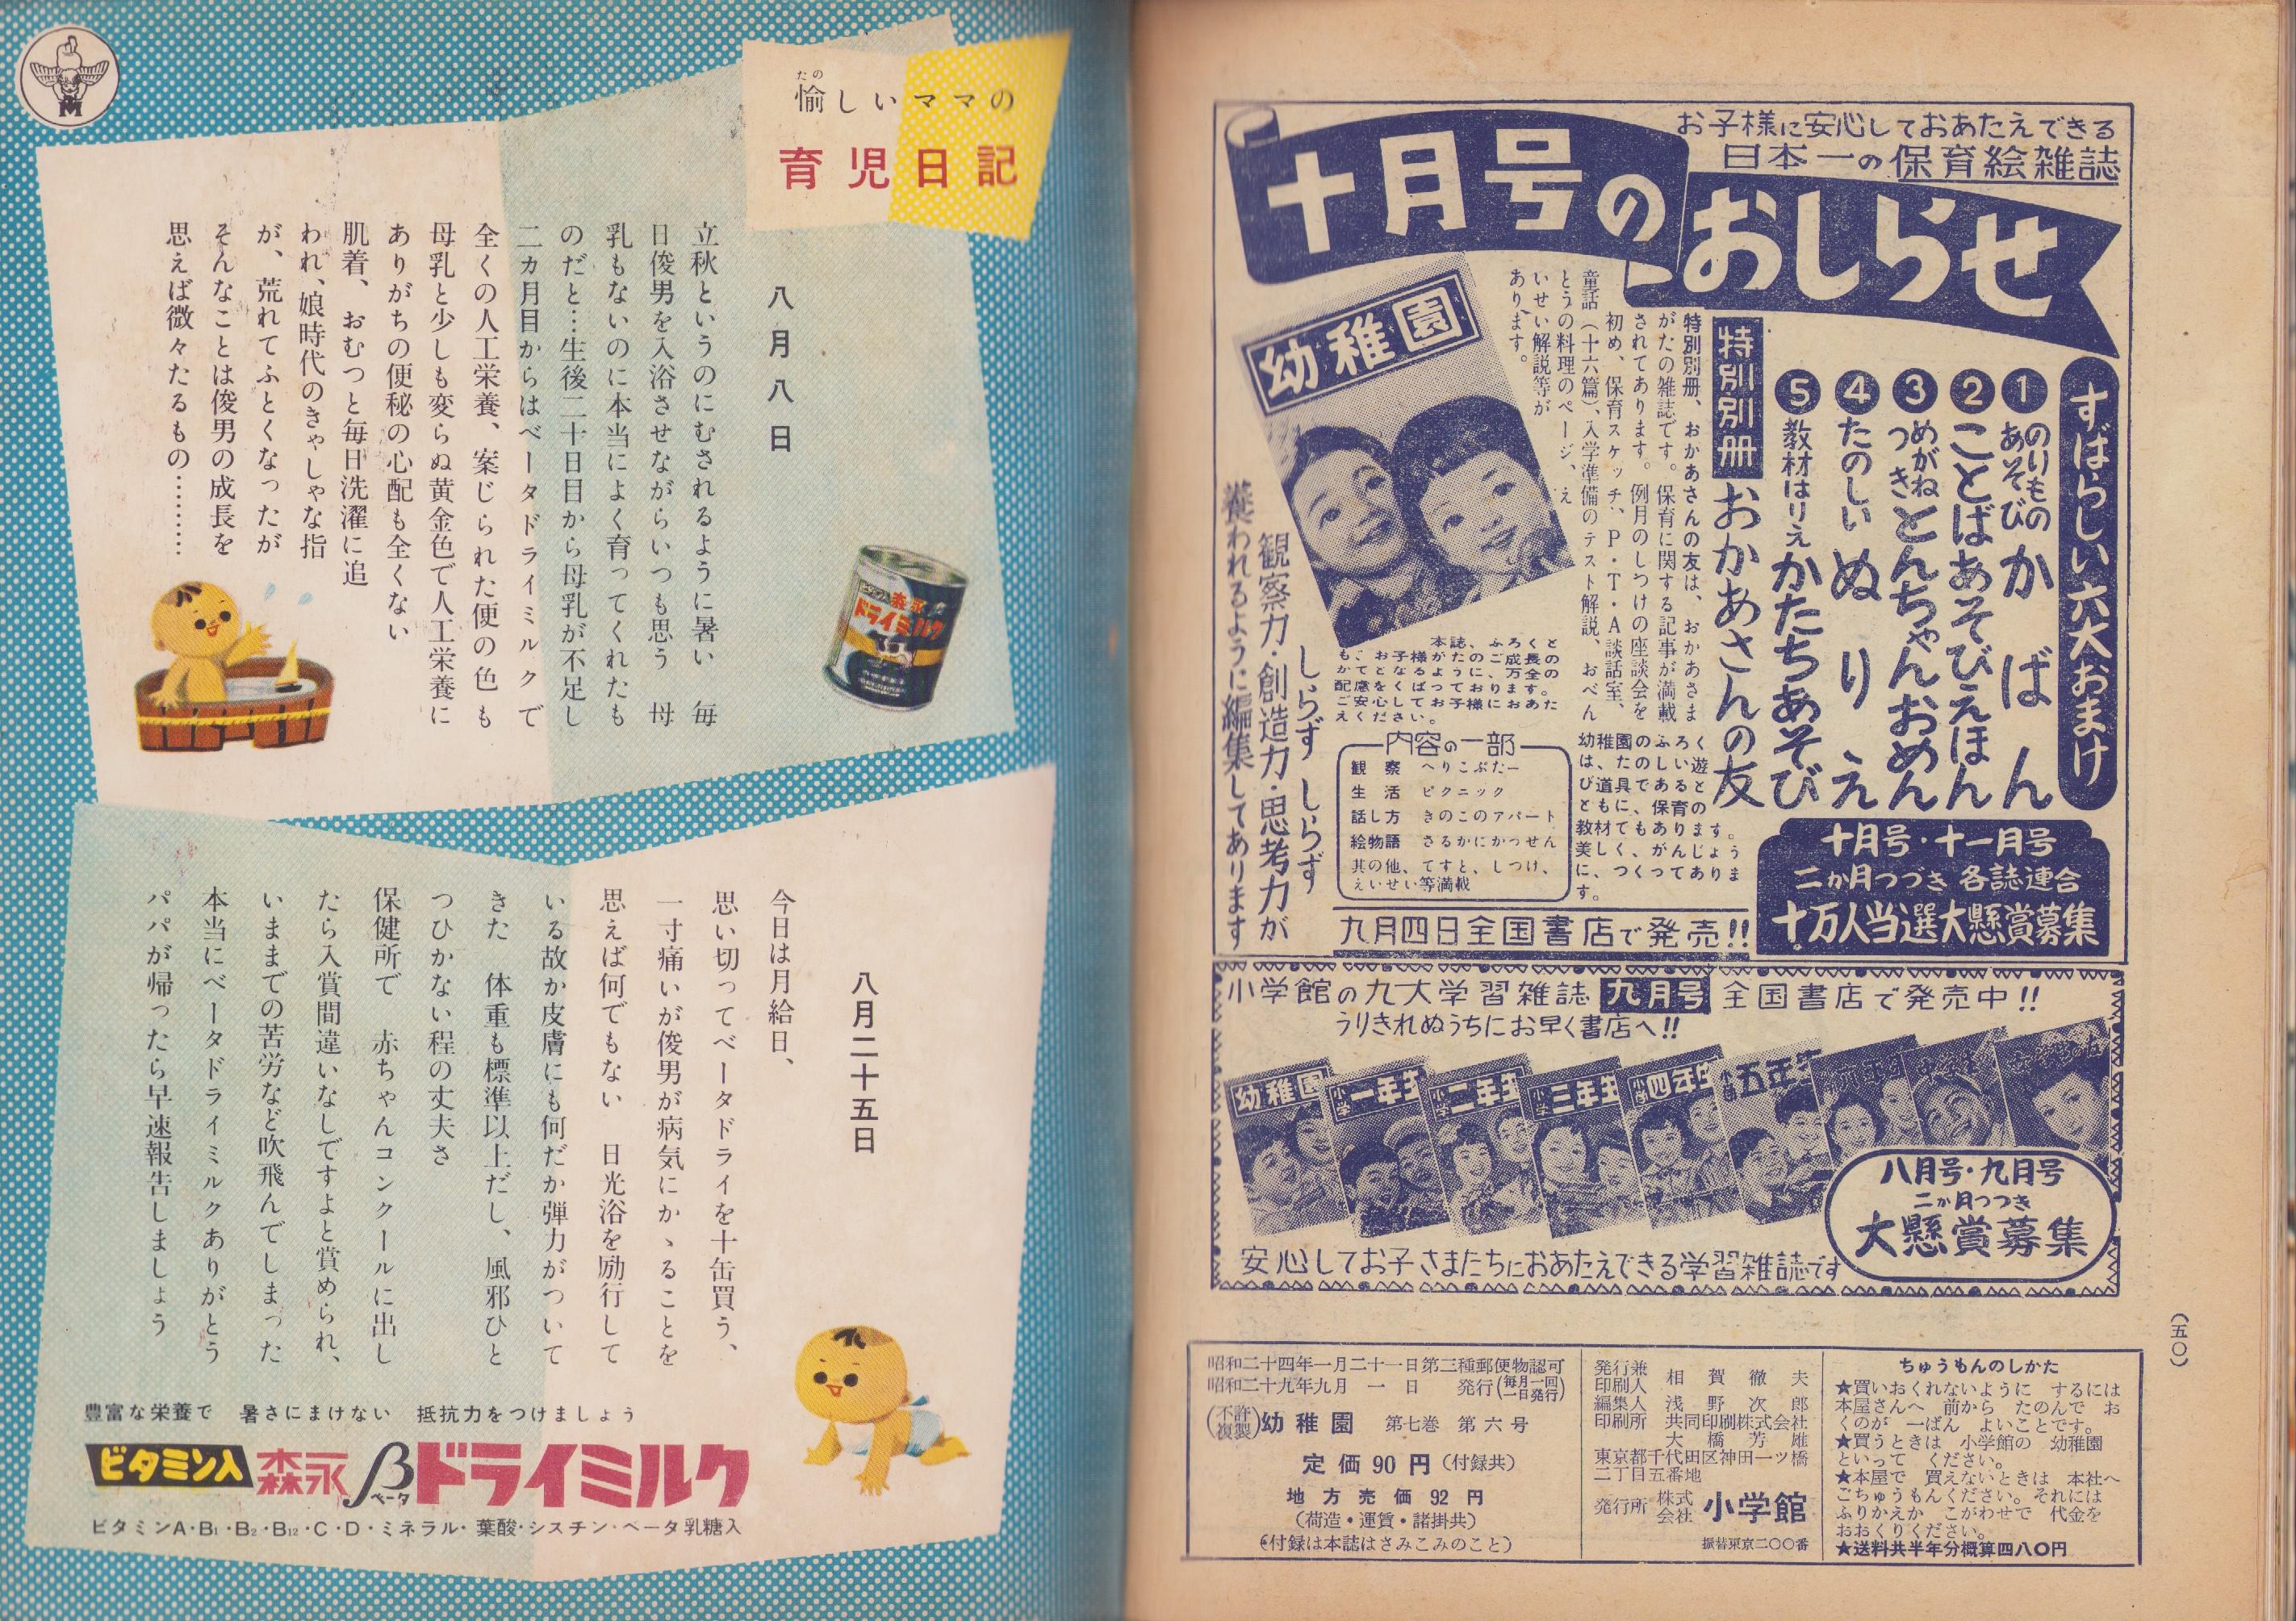 お子様に安心しておあたえできる
日本一の保育絵雑誌
十月号の
おしらせ
すばらしい六大おまけ
❶のりものあそび かばん
❷ことばあそびえほん
❸めがねつき とんちゃんおめん
❹たのしい ぬりえ
❺教材はりえ かたちあそび
特別別册 おかあさんの友
特別別册、おかあさんの友は、おかあさま
がたの雑誌です。保育に関する記事が満載
されてあります。例月のしつけの座談会を
初め、保育スケッチ、P・T・A談話室、
童話（十六篇）、入学準備のテスト解説、おべん
とうの料理のページ、え
いせい解説等が
あります。
幼稚園
十月号・十一月号
二か月つづき 各誌連合
十万人当選大懸賞募集
幼稚園のふろく
は、たのしい遊
び道具であると
ともに、保育の
教材でもあります。
美しく、がんじょう
に、つくってありま
す。
本誌、ふろくと
も、お子様がたのご成長の
かてとなるように、万全の
配慮をくばっております。
ご安心してお子様におあた
えください。
内容の一部
観察 へりこぷたー
生活 ピクニック
話し方 きのこのアパート
絵物語 さるかにかっせん
其の他、てすと、しつけ、
えいせい等満載
しらず しらず
観察力・創造力・思考力が
養われるように編集してあります
九月四日全国書店で発売!!
小学館の九大学習雑誌 九月号 全国書店で発売中!!
うりきれぬうちにお早く書店へ!!
幼稚園
小学一年生
小学二年生
小学三年生
小学四年生
小学五年生
八月号・九月号
二か月つづき
大懸賞募集
安心してお子さまたちにおあたえできる学習雑誌です
（五〇）
ちゅうもんのしかた
★買いおくれないように するには
本屋さんへ 前から たのんで お
くのが 一ばん よいことです。
★買うときは 小学館の 幼稚園
といって ください。
★本屋で 買えないときは 本社へ
ごちゅうもんください。それには
ふりかえか こがわせで 代金を
おおくりください。
★送料共半年分概算四八〇円
発行兼印刷人 相賀徹夫
編集人 浅野次郎
印刷所 共同印刷株式会社
大橋芳雄
東京都千代田区神田一ツ橋
二丁目五番地
発行所 株式会社 小学館
振替東京二〇〇番
昭和二十四年一月二十一日第三種郵便物認可
昭和二十九年九月一日 発行(毎月一回一日発行)
(不許複製)幼稚園 第七巻 第六号
定価90円（付録共）
地方売価92円
（荷造・運賃・諸掛共）
（付録は本誌はさみこみのこと）
愉しいママの
たの
育児日記
八月八日
立秋というのにむされるように暑い 毎
日俊男を入浴させながらいつも思う 母
乳もないのに本当によく育ってくれたも
のだと…生後二十日目から母乳が不足し
二カ月目からはベータドライミルクで
全くの人工栄養、案じられた便の色も
母乳と少しも変らぬ黄金色で人工栄養に
ありがちの便秘の心配も全くない
肌着、おむつと毎日洗濯に追
われ、娘時代のきゃしゃな指
が、荒れてふとくなったが
そんなことは俊男の成長を
思えば微々たるもの………
森永
ドライミルク
八月二十五日
今日は月給日、
思い切ってベータドライを十缶買う、
一寸痛いが俊男が病気にかゝることを
思えば何でもない 日光浴を励行して
いる故か皮膚にも何だか弾力がついて
きた 体重も標準以上だし、風邪ひと
つひかない程の丈夫さ
保健所で 赤ちゃんコンクールに出し
たら入賞間違いなしですよと賞められ、
いままでの苦労など吹飛んでしまった
本当にベータドライミルクありがとう
パパが帰ったら早速報告しましょう
豊富な栄養で 暑さにまけない 抵抗力をつけましょう
ビタミン入 森永βベータドライミルク
ビタミンA・B₁・B₂・B₁₂・C・D・ミネラル・葉酸・シスチン・ベータ乳糖入
M